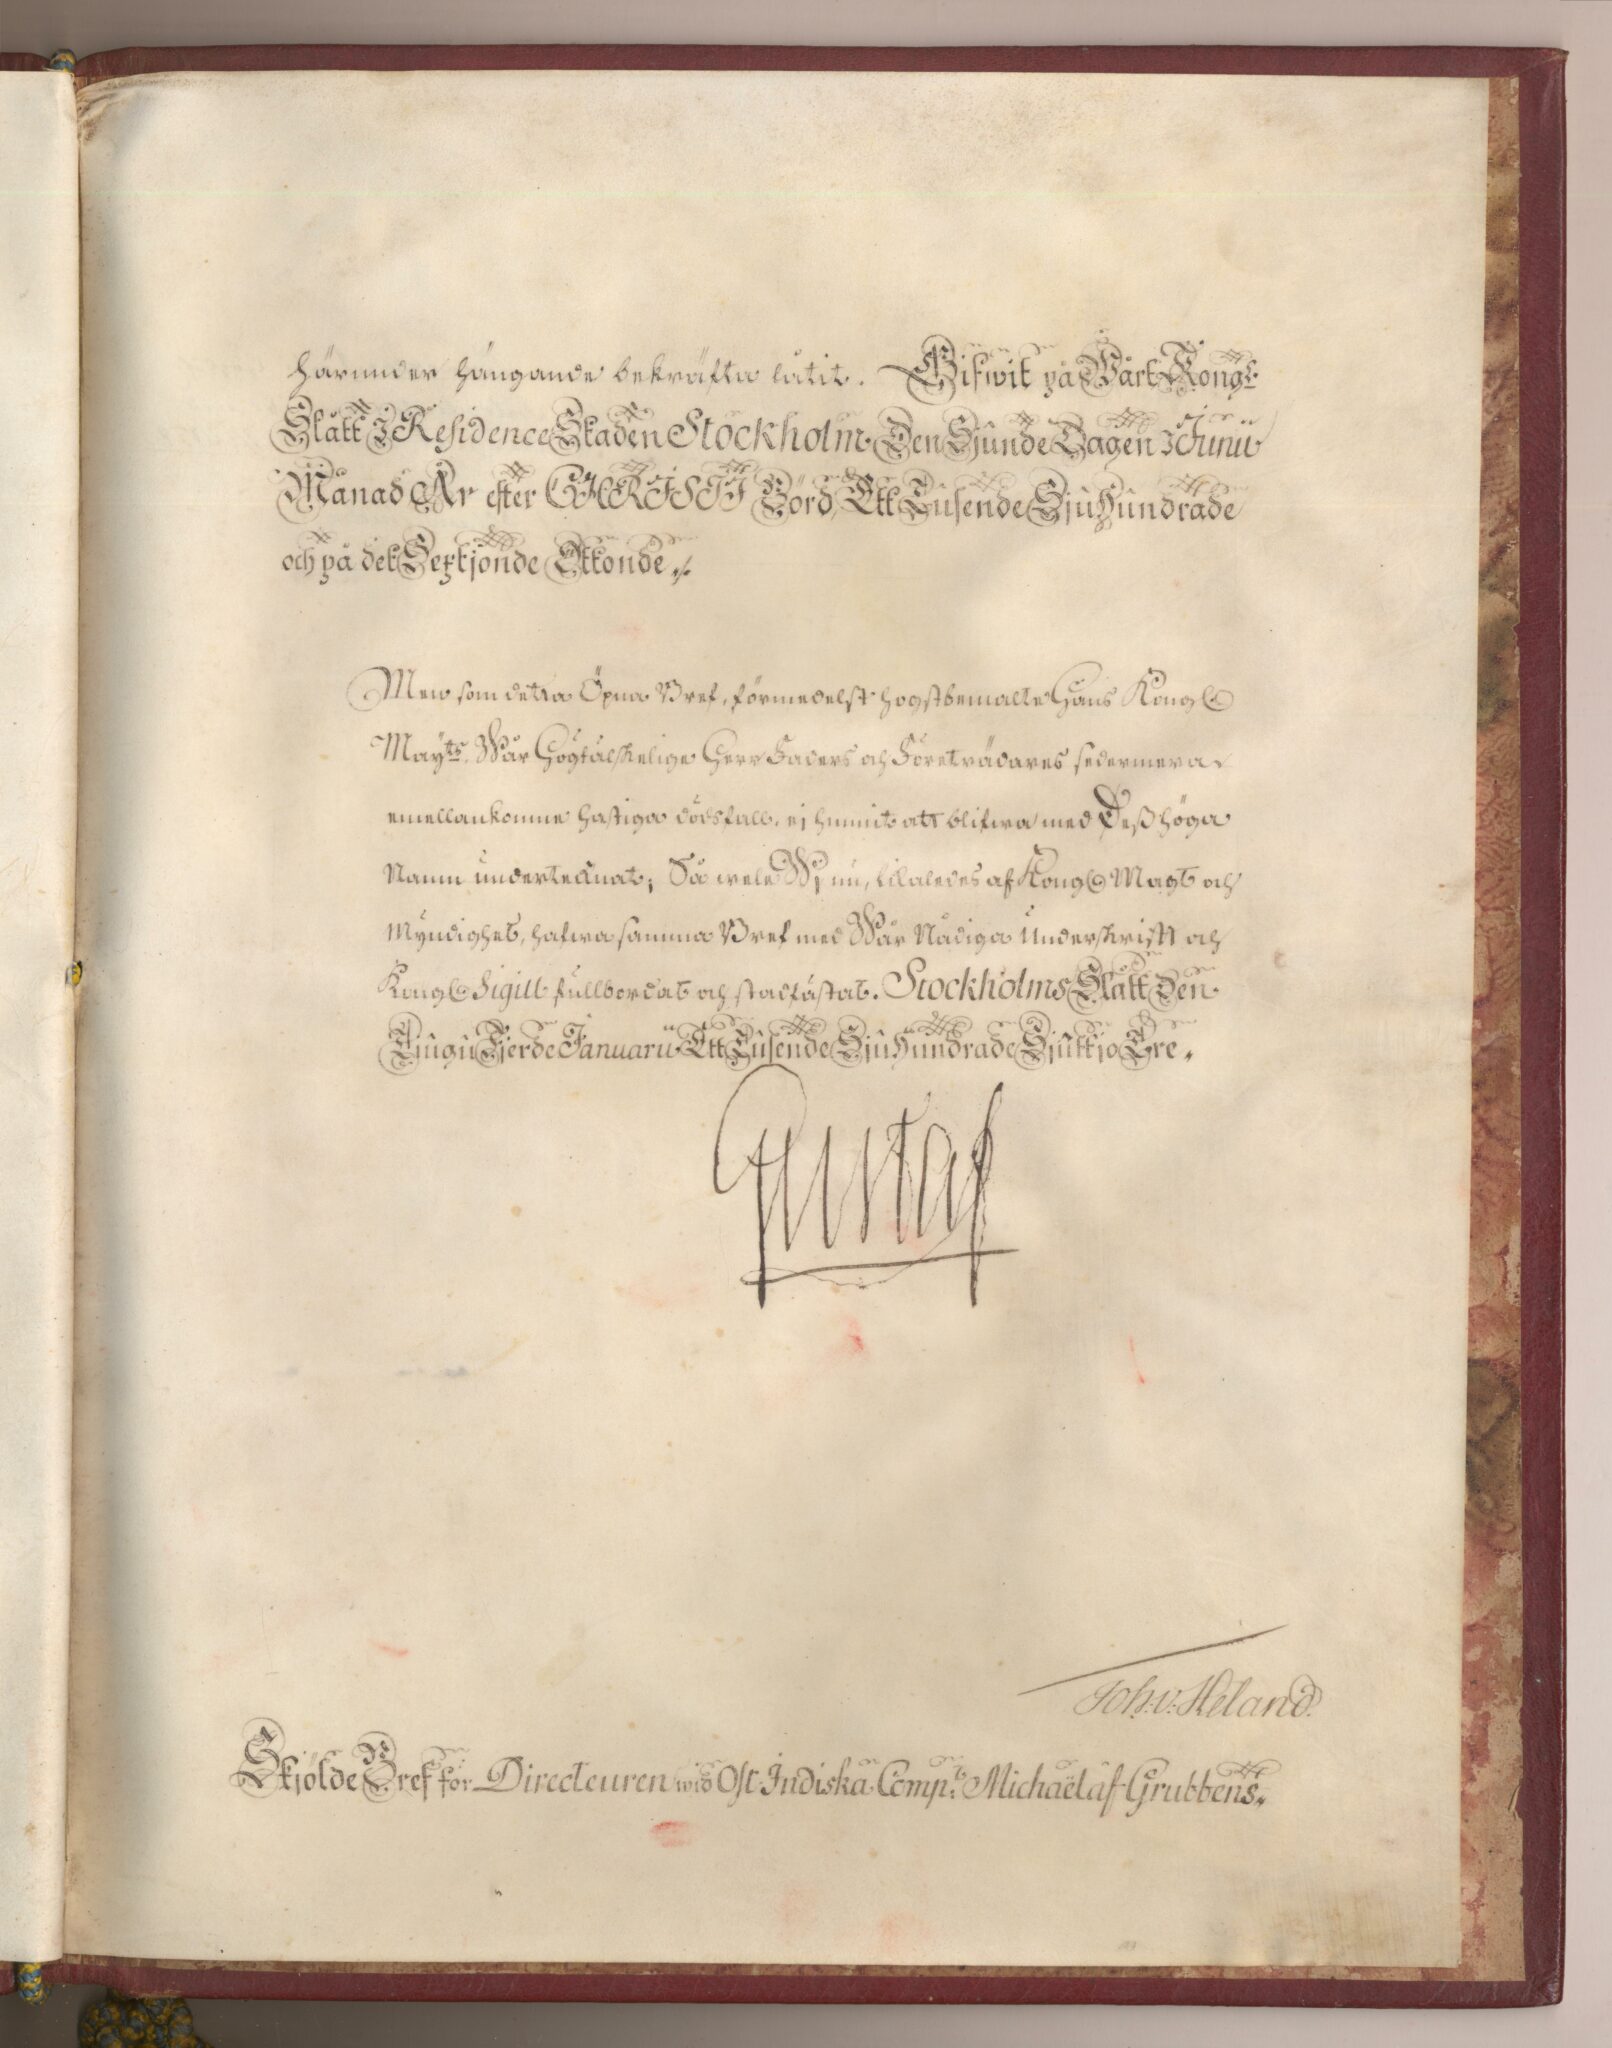 härunder hängande bekräfta låtit. Gifwit på Wårt Kongl.
Slått I Residence Staden Stockholm. Den Sjunde Dagen I Junii
Månad År efter CHRISTI Börd, Ett Tusende Sju Hundrade
och på det Sextjonde Ottonde.
Men som detta Öpna Bref, förmedelst högstbemälte Hans Kongl.
Mayts. Wår Högtälskelige Herr Faders och Företrädares sedermera
emellankomne hastiga dödsfall, ej hunnit att blifwa med Deß höga
Namn undertecknat; Så wele Wj nu, likaledes af Kongl. Magt och
Myndighet, hafwa samma Bref med Wår Nådiga Underskrift och
Kongl. Sigill fullbordat och stadfästat. Stockholms Slått Den
Tjugu Fjerde Januarii Ett Tusende Sju Hundrade Sjuttjo Tre.
Gustaf
Joh: v: Heland.
Skjölde Bref för Directeuren wid Ost Indiska Comp:t Michael af Grubbens.